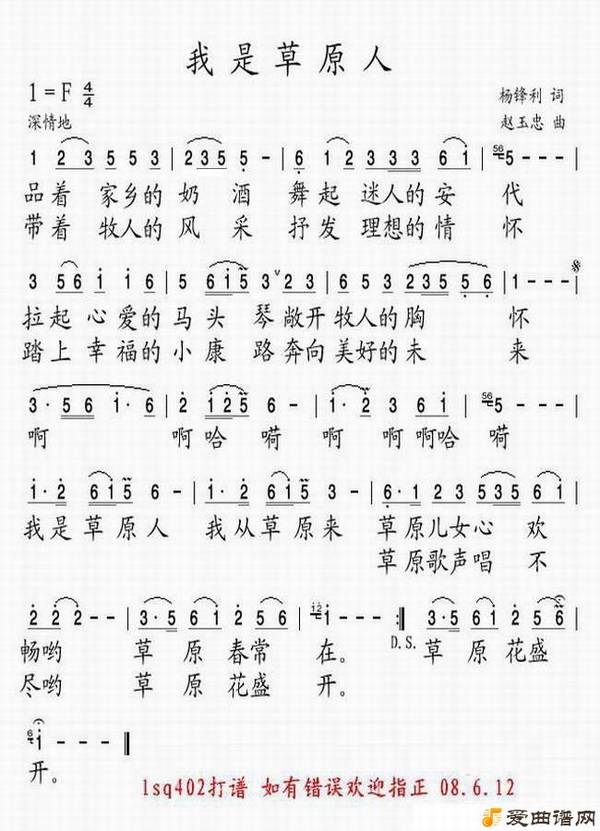 我是草原人
1=F 4/4
杨锋利 词
深情地
赵玉忠 曲
1 2 3 5 5 3 | 2·3 5 5 | 6· 1 2 3 3 6 1 | 56 5 - - - |
品着 家乡的 奶 酒 舞起 迷人的 安 代
带着 牧人的 风 采 抒发 理想的 情 怀
3 5 6 i i 6 | 5 6 i 5 3 ∨ 2 | 3· 6 5 3 2 3 5 5 6 | 1 - - - |
拉起 心 爱的 马 头 琴 敞开 牧人的 胸 怀
踏上 幸 福的 小 康 路 奔向 美好的 未 来
3· 5 6 i· 6 | 2 i 2 5 6 - | i· 2 3 6 i | 56 5 - - - |
啊 啊哈 嗬 啊 啊 啊哈 嗬
i· 2 6 i 5 6 - | i· 2 6 i 2 3 - | 6· i 2 3 5 3 5 6 |
我是 草 原 人 我从 草 原 来 草原 儿女 心 欢
草原 歌声 唱 不
2 2 2 - - | 3· 5 6 i 2 6 | i2 i - - - :‖ 3· 5 6 i 5 2 6 |
畅哟 草 原 春常 在。 D.S. 草 原 花盛
尽哟 草 原 花盛 开。
6 i - - ‖
开。
lsq402打谱 如有错误欢迎指正 08.6.12
爱曲谱网